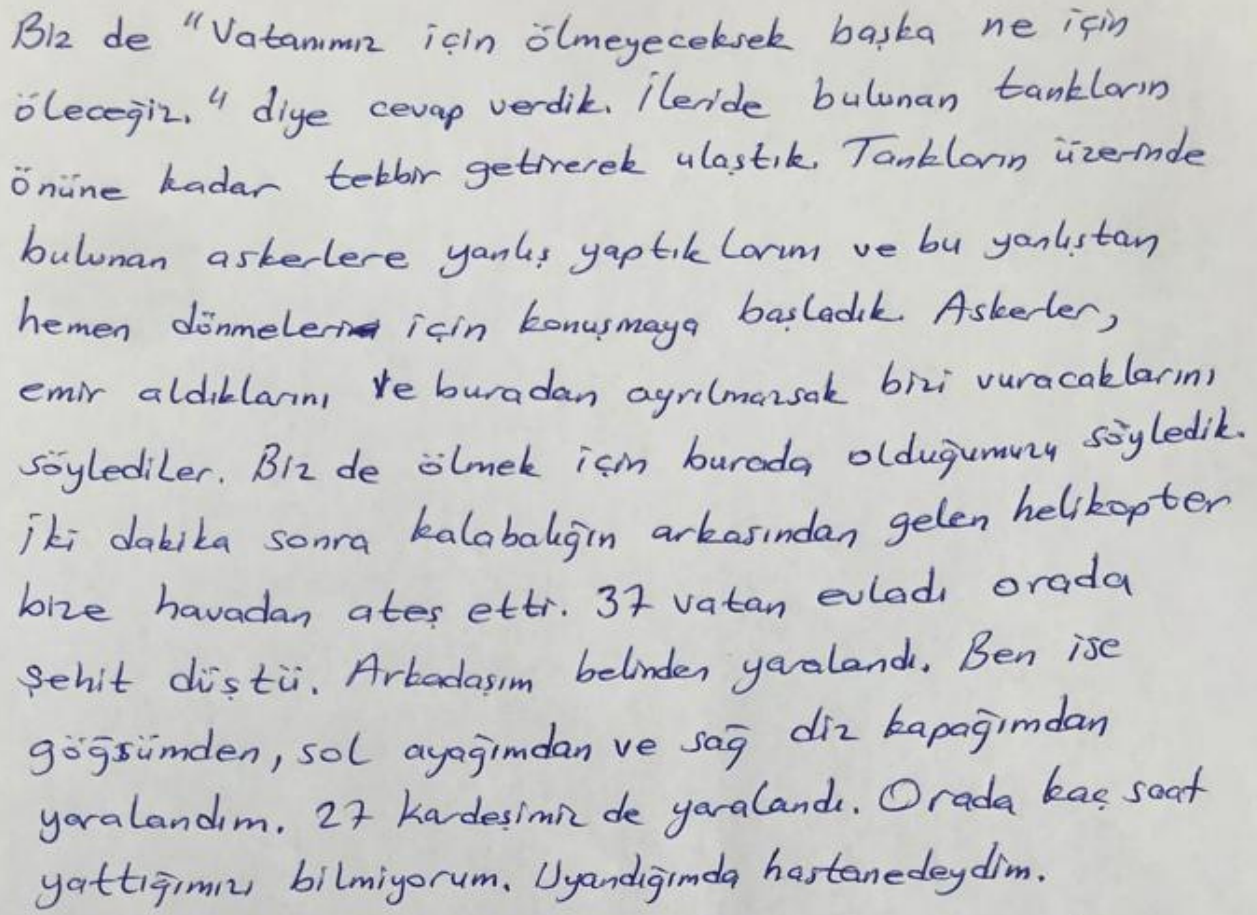 Biz de "Vatanımız için ölmeyeceksek başka ne için
öleceğiz." diye cevap verdik. İleride bulunan tankların
önüne kadar tekbir getirerek ulaştık. Tankların üzerinde
bulunan askerlere yanlış yaptıklarını ve bu yanlıştan
hemen dönmeleri için konuşmaya başladık. Askerler,
emir aldıklarını ve buradan ayrılmazsak bizi vuracaklarını
söylediler. Biz de ölmek için burada olduğumuzu söyledik.
İki dakika sonra kalabalığın arkasından gelen helikopter
bize havadan ateş etti. 37 vatan evladı orada
şehit düştü. Arkadaşım belinden yaralandı. Ben ise
göğsümden, sol ayağımdan ve sağ diz kapağımdan
yaralandım. 27 kardeşimiz de yaralandı. Orada kaç saat
yattığımızı bilmiyorum. Uyandığımda hastanedeydim.